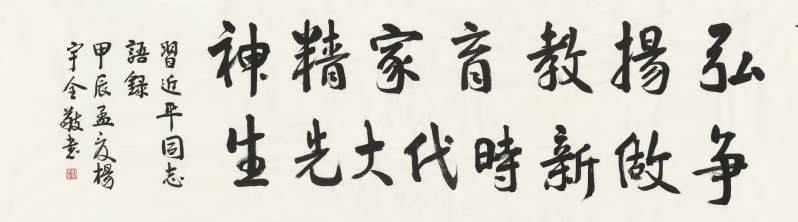 弘揚教育家精神
争做新時代大先生
習近平同志
語録
甲辰孟夏楊
宇全敬書